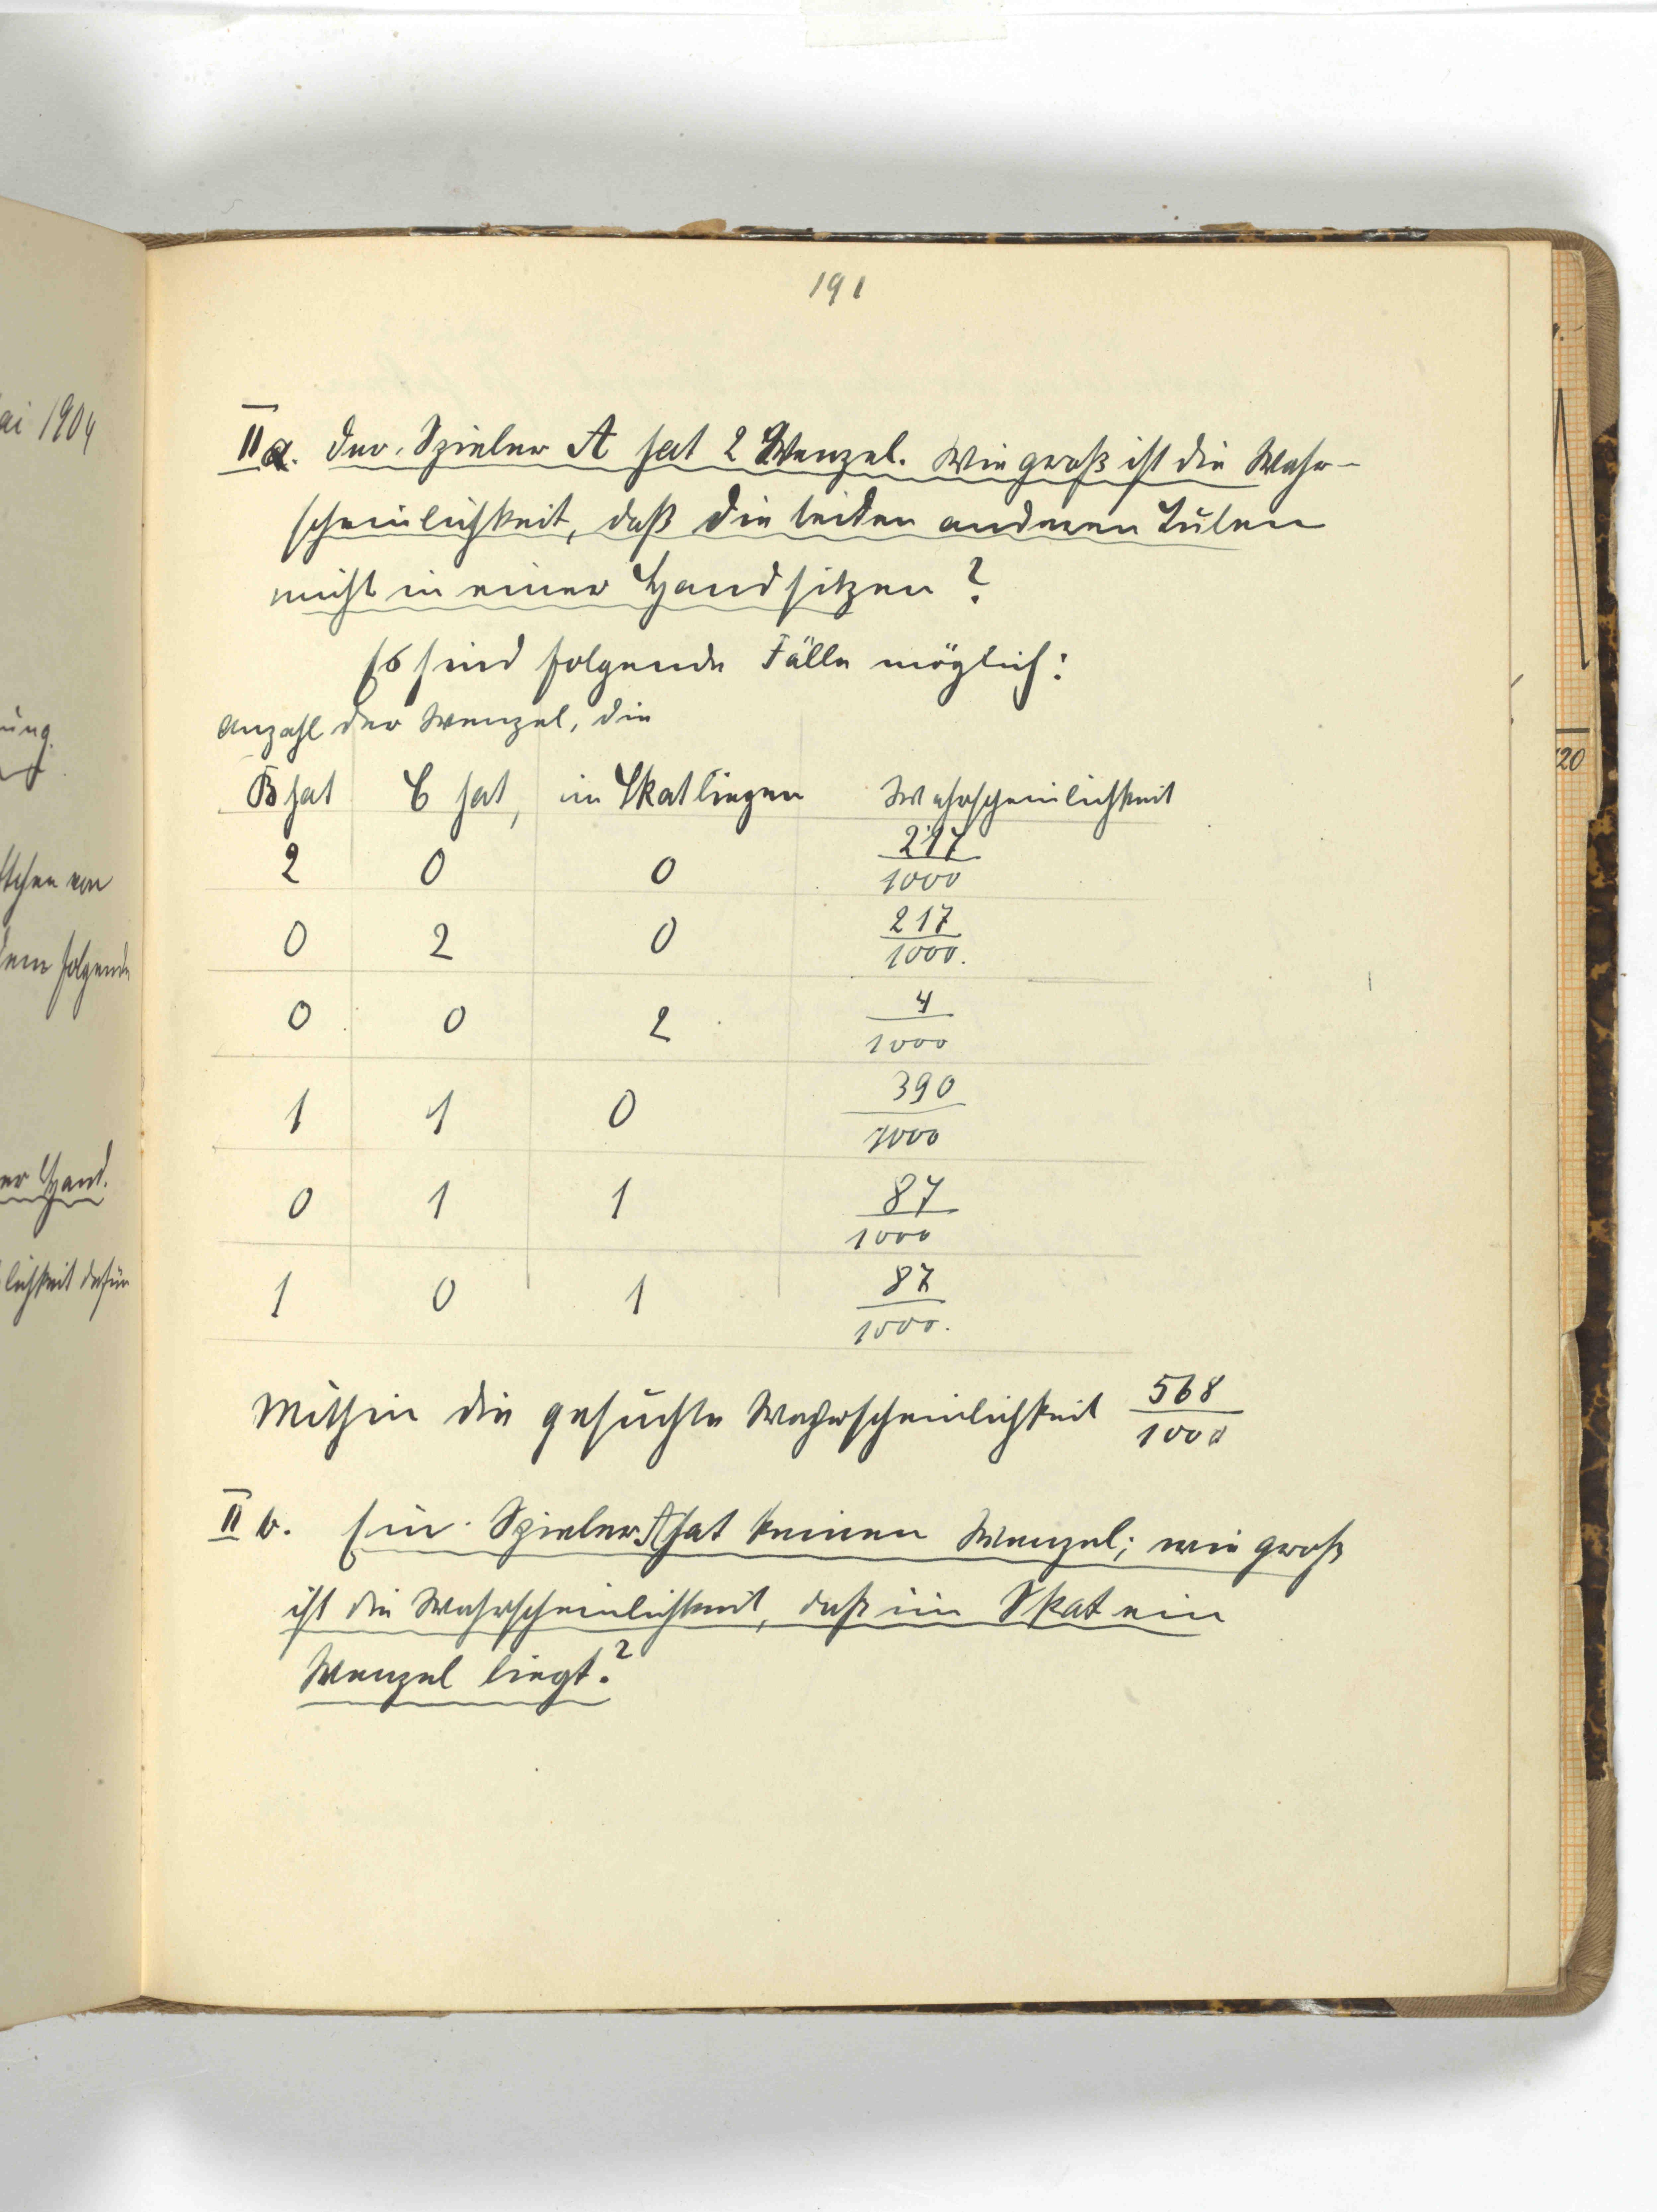 191
ai 1904
IIa. Der Spieler A hat 2 Wenzel. Wie groß ist die Wahr-
scheinlichkeit, daß die beiden anderen Buben
nicht in einer Hand sitzen?
Es sind folgende Fälle möglich:
Anzahl der Wenzel, die
B hat C hat, im Skat liegen Wahrscheinlichkeit
2 0 0 217/1000
0 2 0 217/1000.
0 0 2 4/1000
1 1 0 390/1000
0 1 1 87/1000
1 0 1 87/1000.
Mithin die gesuchte Wahrscheinlichkeit 568/1000
II b. Ein Spieler A hat keinen Wenzel; wie groß
ist die Wahrscheinlichkeit, daß im Skat ein
Wenzel liegt?
ung.
tchen von
dem folgende
er Hand.
lichkeit dafür
120